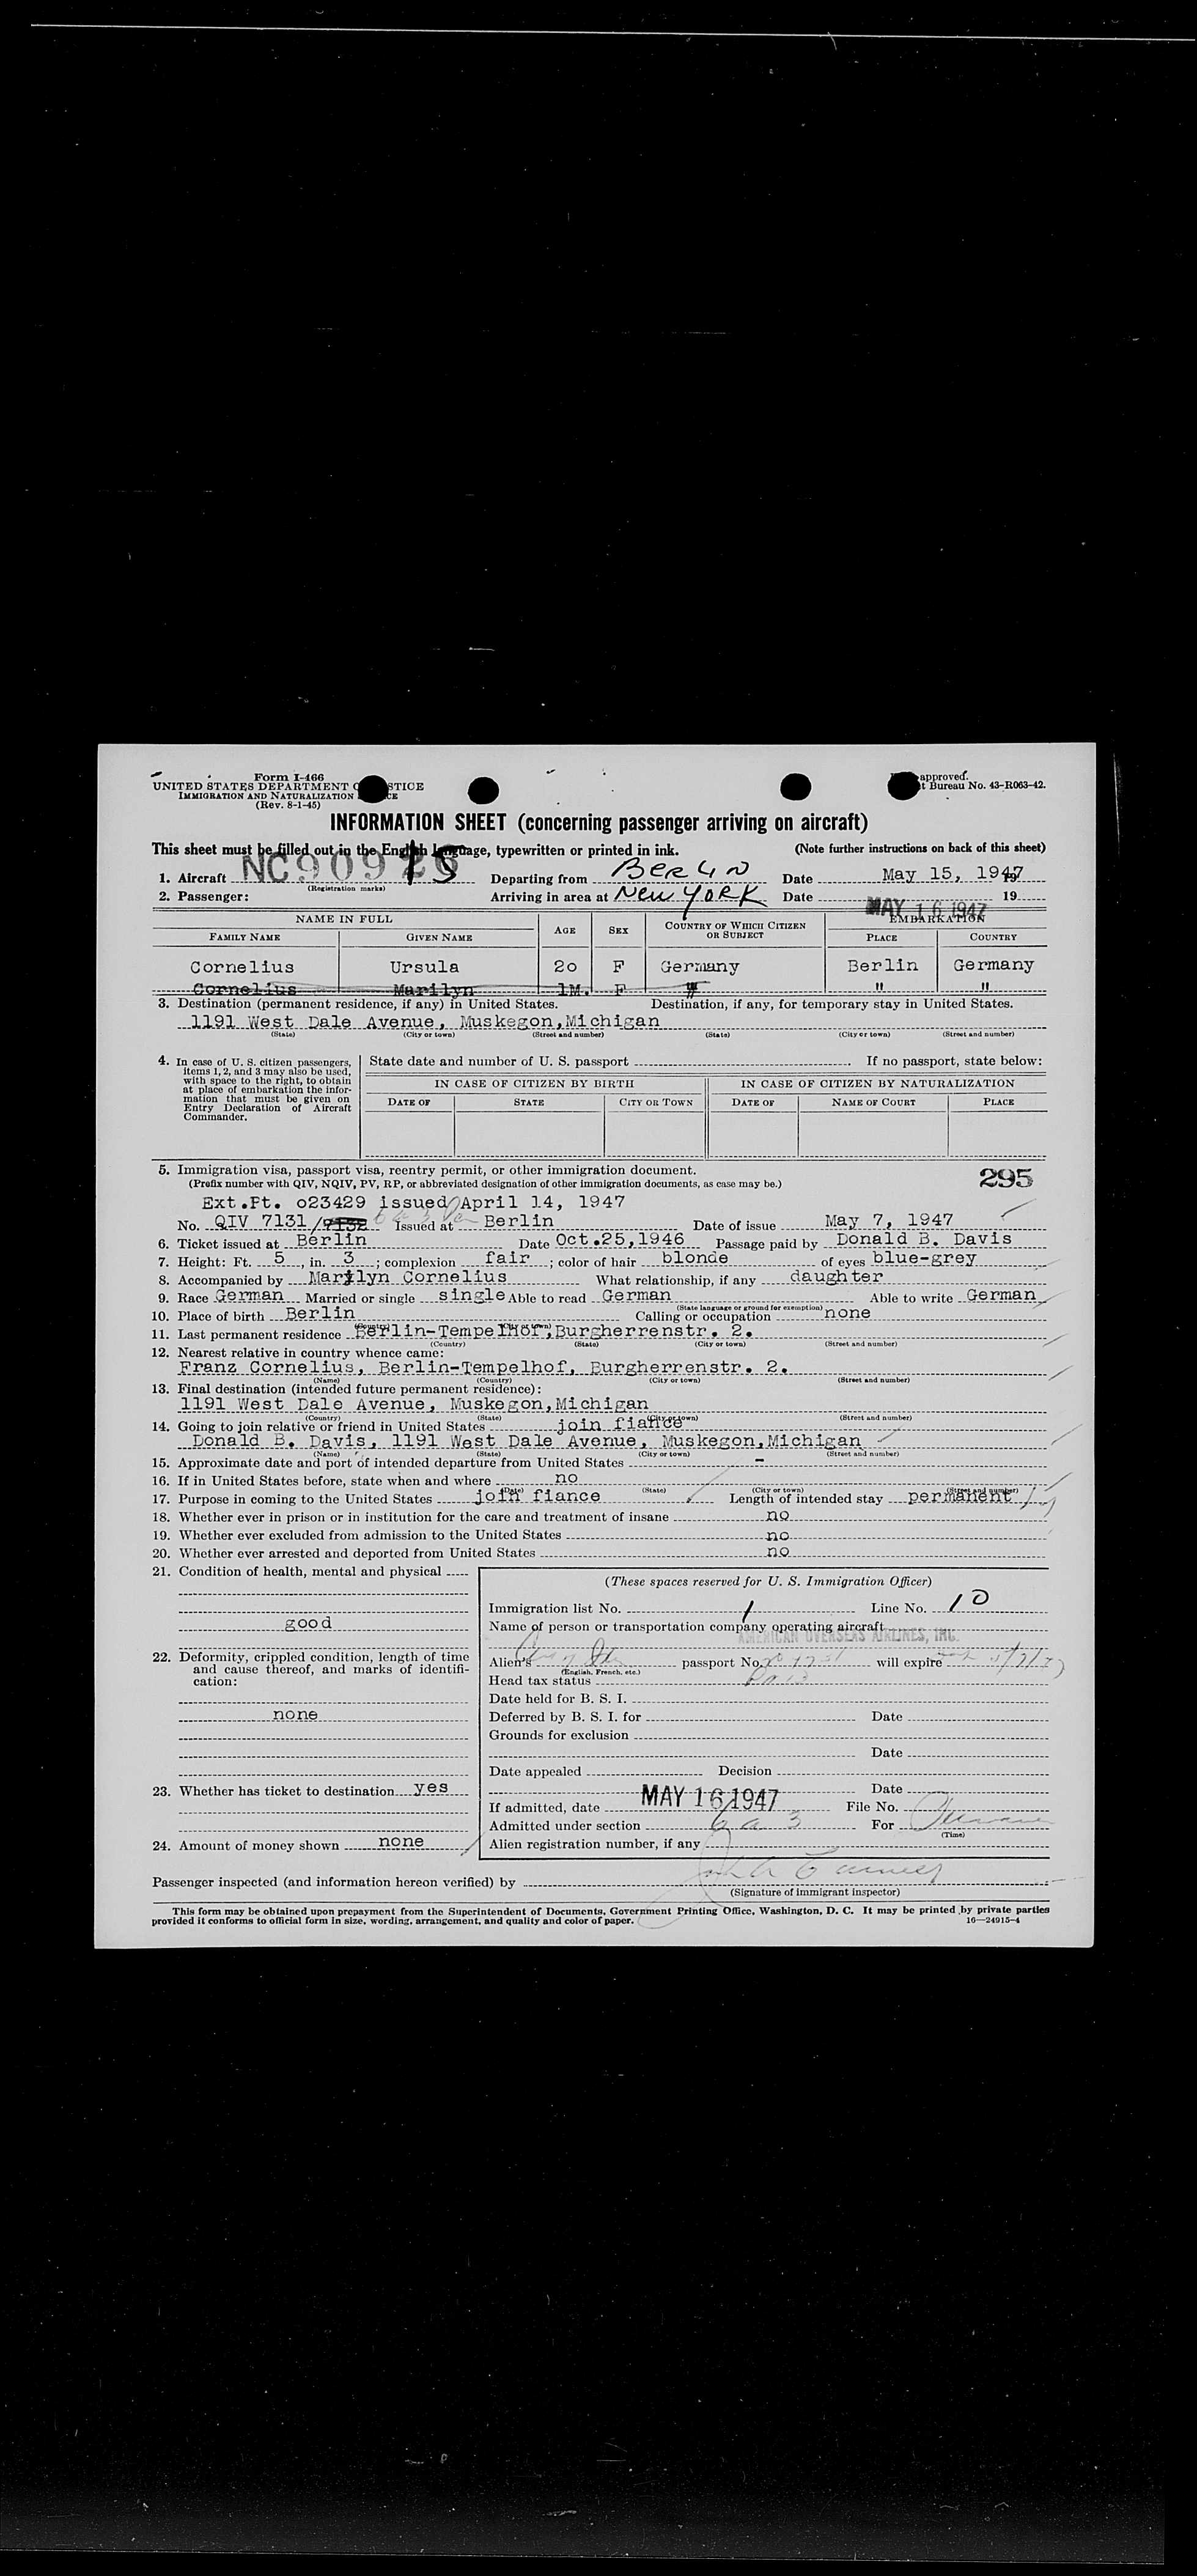 Form I-466
UNITED STATES DEPARTMENT STICE
IMMIGRATION AND NATURALIZATION
(Rev. 8-1-45)
approved.
t Bureau No. 43-R063-42.
INFORMATION SHEET (concerning passenger arriving on aircraft)
This sheet must be filled out in the English language, typewritten or printed in ink. (Note further instructions on back of this sheet)
1. Aircraft NC909 15 Departing from BERLIN Date May 15, 1947
(Registration marks)
2. Passenger: Arriving in area at NEW YORK Date MAY 16 1947 19
NAME IN FULL AGE SEX COUNTRY OF WHICH CITIZEN OR SUBJECT EMBARKATION
FAMILY NAME GIVEN NAME PLACE COUNTRY
Cornelius Ursula 20 F Germany Berlin Germany
Cornelius Marilyn 1M. F " " "
3. Destination (permanent residence, if any) in United States. Destination, if any, for temporary stay in United States.
1191 West Dale Avenue, Muskegon,Michigan
(State) (City or town) (Street and number) (State) (City or town) (Street and number)
4. In case of U. S. citizen passengers, items 1, 2, and 3 may also be used, with space to the right, to obtain at place of embarkation the information that must be given on Entry Declaration of Aircraft Commander.
State date and number of U. S. passport If no passport, state below:
IN CASE OF CITIZEN BY BIRTH IN CASE OF CITIZEN BY NATURALIZATION
DATE OF STATE CITY OR TOWN DATE OF NAME OF COURT PLACE
5. Immigration visa, passport visa, reentry permit, or other immigration document. 295
(Prefix number with QIV, NQIV, PV, RP, or abbreviated designation of other immigration documents, as case may be.)
Ext.Pt. o23429 issued April 14, 1947
No. QIV 7131/7132 Issued at Berlin Date of issue May 7, 1947
6. Ticket issued at Berlin Date Oct.25,1946 Passage paid by Donald B. Davis
7. Height: Ft. 5, in. 3; complexion fair; color of hair blonde of eyes blue-grey
8. Accompanied by Marilyn Cornelius What relationship, if any daughter
9. Race German Married or single single Able to read German Able to write German
(State language or ground for exemption)
10. Place of birth Berlin Calling or occupation none
(Country) (City or town)
11. Last permanent residence Berlin-Tempelhof,Burgherrenstr. 2.
(Country) (State) (City or town) (Street and number)
12. Nearest relative in country whence came:
Franz Cornelius, Berlin-Tempelhof, Burgherrenstr. 2.
(Name) (Country) (City or town) (Street and number)
13. Final destination (intended future permanent residence):
1191 West Dale Avenue, Muskegon,Michigan
(Country) (State) (City or town) (Street and number)
14. Going to join relative or friend in United States join fiance
Donald B. Davis, 1191 West Dale Avenue, Muskegon,Michigan
(Name) (State) (City or town) (Street and number)
15. Approximate date and port of intended departure from United States -
16. If in United States before, state when and where no
(Date) (State) (City or town) (Street and number)
17. Purpose in coming to the United States join fiance Length of intended stay permanent
18. Whether ever in prison or in institution for the care and treatment of insane no
19. Whether ever excluded from admission to the United States no
20. Whether ever arrested and deported from United States no
21. Condition of health, mental and physical
good
22. Deformity, crippled condition, length of time and cause thereof, and marks of identification:
none
23. Whether has ticket to destination yes
24. Amount of money shown none
(These spaces reserved for U. S. Immigration Officer)
Immigration list No. 1 Line No. 10
Name of person or transportation company operating aircraft
AMERICAN OVERSEAS AIRLINES, INC.
Alien's passport No. will expire
(English, French, etc.)
Head tax status
Date held for B. S. I.
Deferred by B. S. I. for Date
Grounds for exclusion
Date
Date appealed Decision
Date
If admitted, date MAY 16 1947 File No.
Admitted under section 6 a 3 For
(Time)
Alien registration number, if any
Passenger inspected (and information hereon verified) by
(Signature of immigrant inspector)
This form may be obtained upon prepayment from the Superintendent of Documents, Government Printing Office, Washington, D. C. It may be printed by private parties
provided it conforms to official form in size, wording, arrangement, and quality and color of paper. 16—24915-4